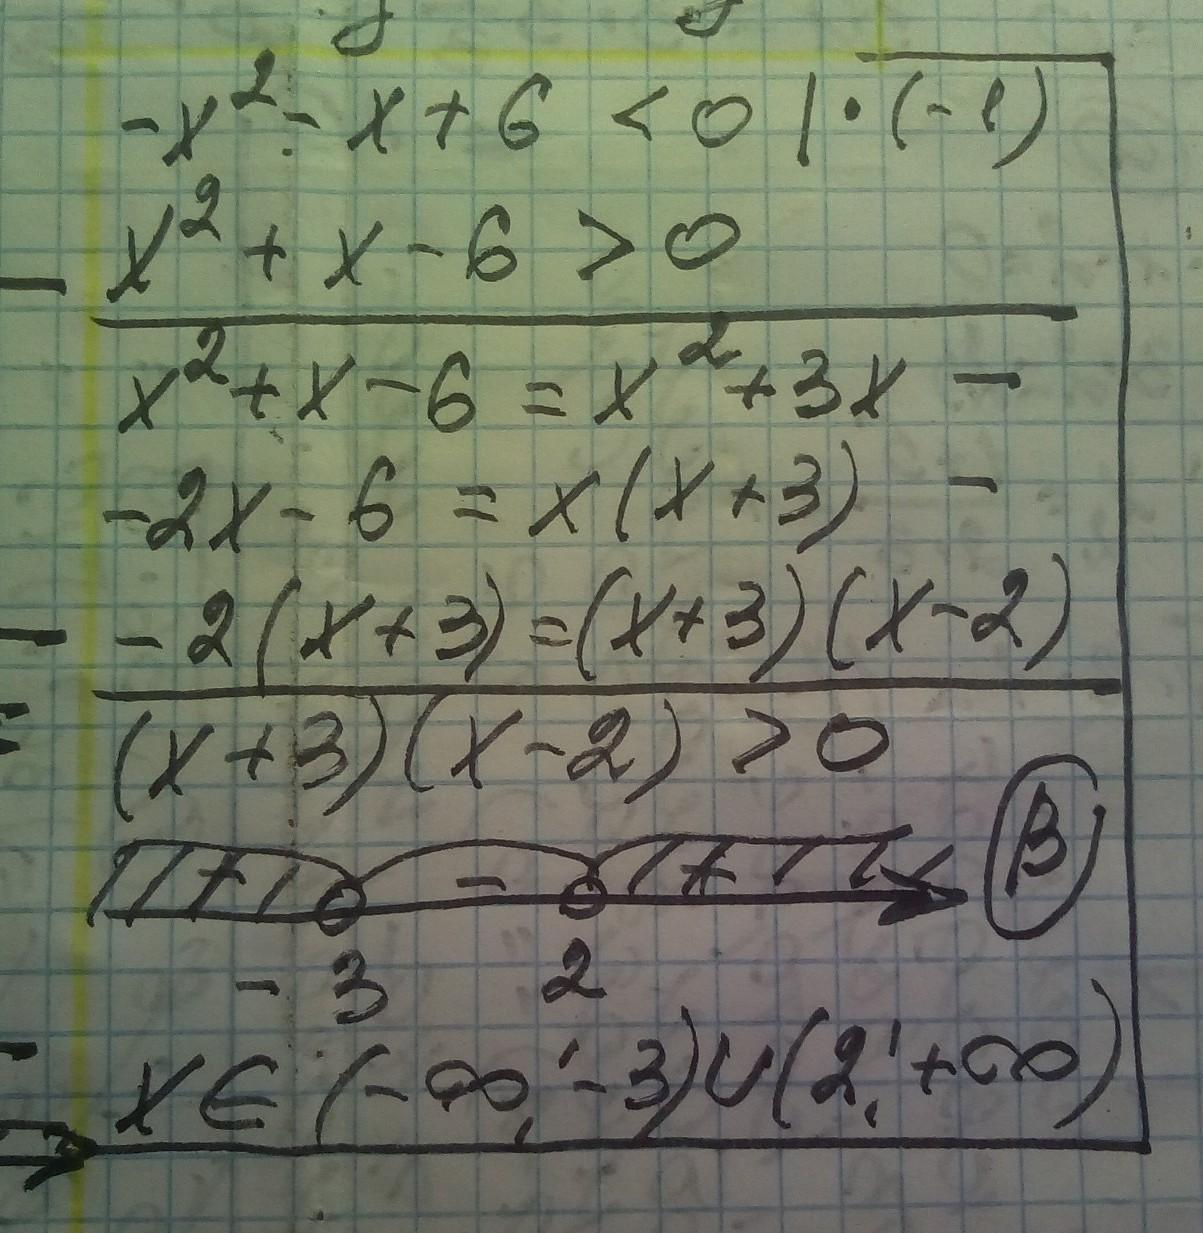 -x² - x + 6 < 0 | · (-1)
x² + x - 6 > 0
x² + x - 6 = x² + 3x -
- 2x - 6 = x(x+3) -
- 2(x+3) = (x+3)(x-2)
(x+3)(x-2) > 0
+ - + B
-3 2
x ∈ (-∞; -3) ∪ (2; +∞)